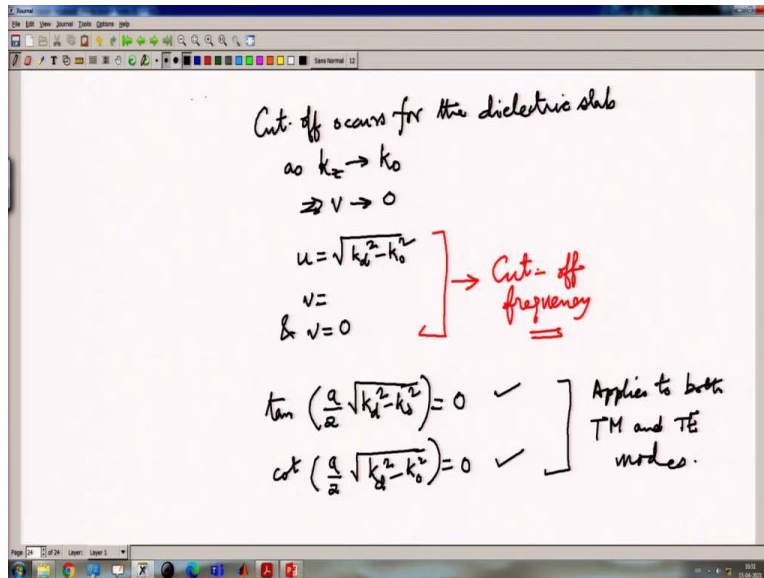 Xournal
File Edit View Journal Tools Options Help
Sans Normal 12
Cut-off occurs for the dielectric slab
as k_z → k_0
⇒ v → 0
u = √(k_d² - k_0²)
v =
& v = 0
→ Cut-off
frequency
tan (a/2 √(k_d² - k_0²)) = 0 ✓
cot (a/2 √(k_d² - k_0²)) = 0 ✓
Applies to both
TM and TE
modes.
Page 24 of 24 Layer: Layer 1